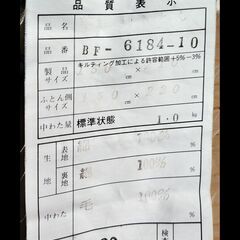 品質表示
品名
品番 BF-6184-10
キルティング加工による許容範囲+5%-3%
製品サイズ cm × cm
ふとん側サイズ 150 × 220 cm
中わた量 標準状態 1.0kg
生地 表地 100%
裏地 綿 100%
中わた 毛 100%
検査